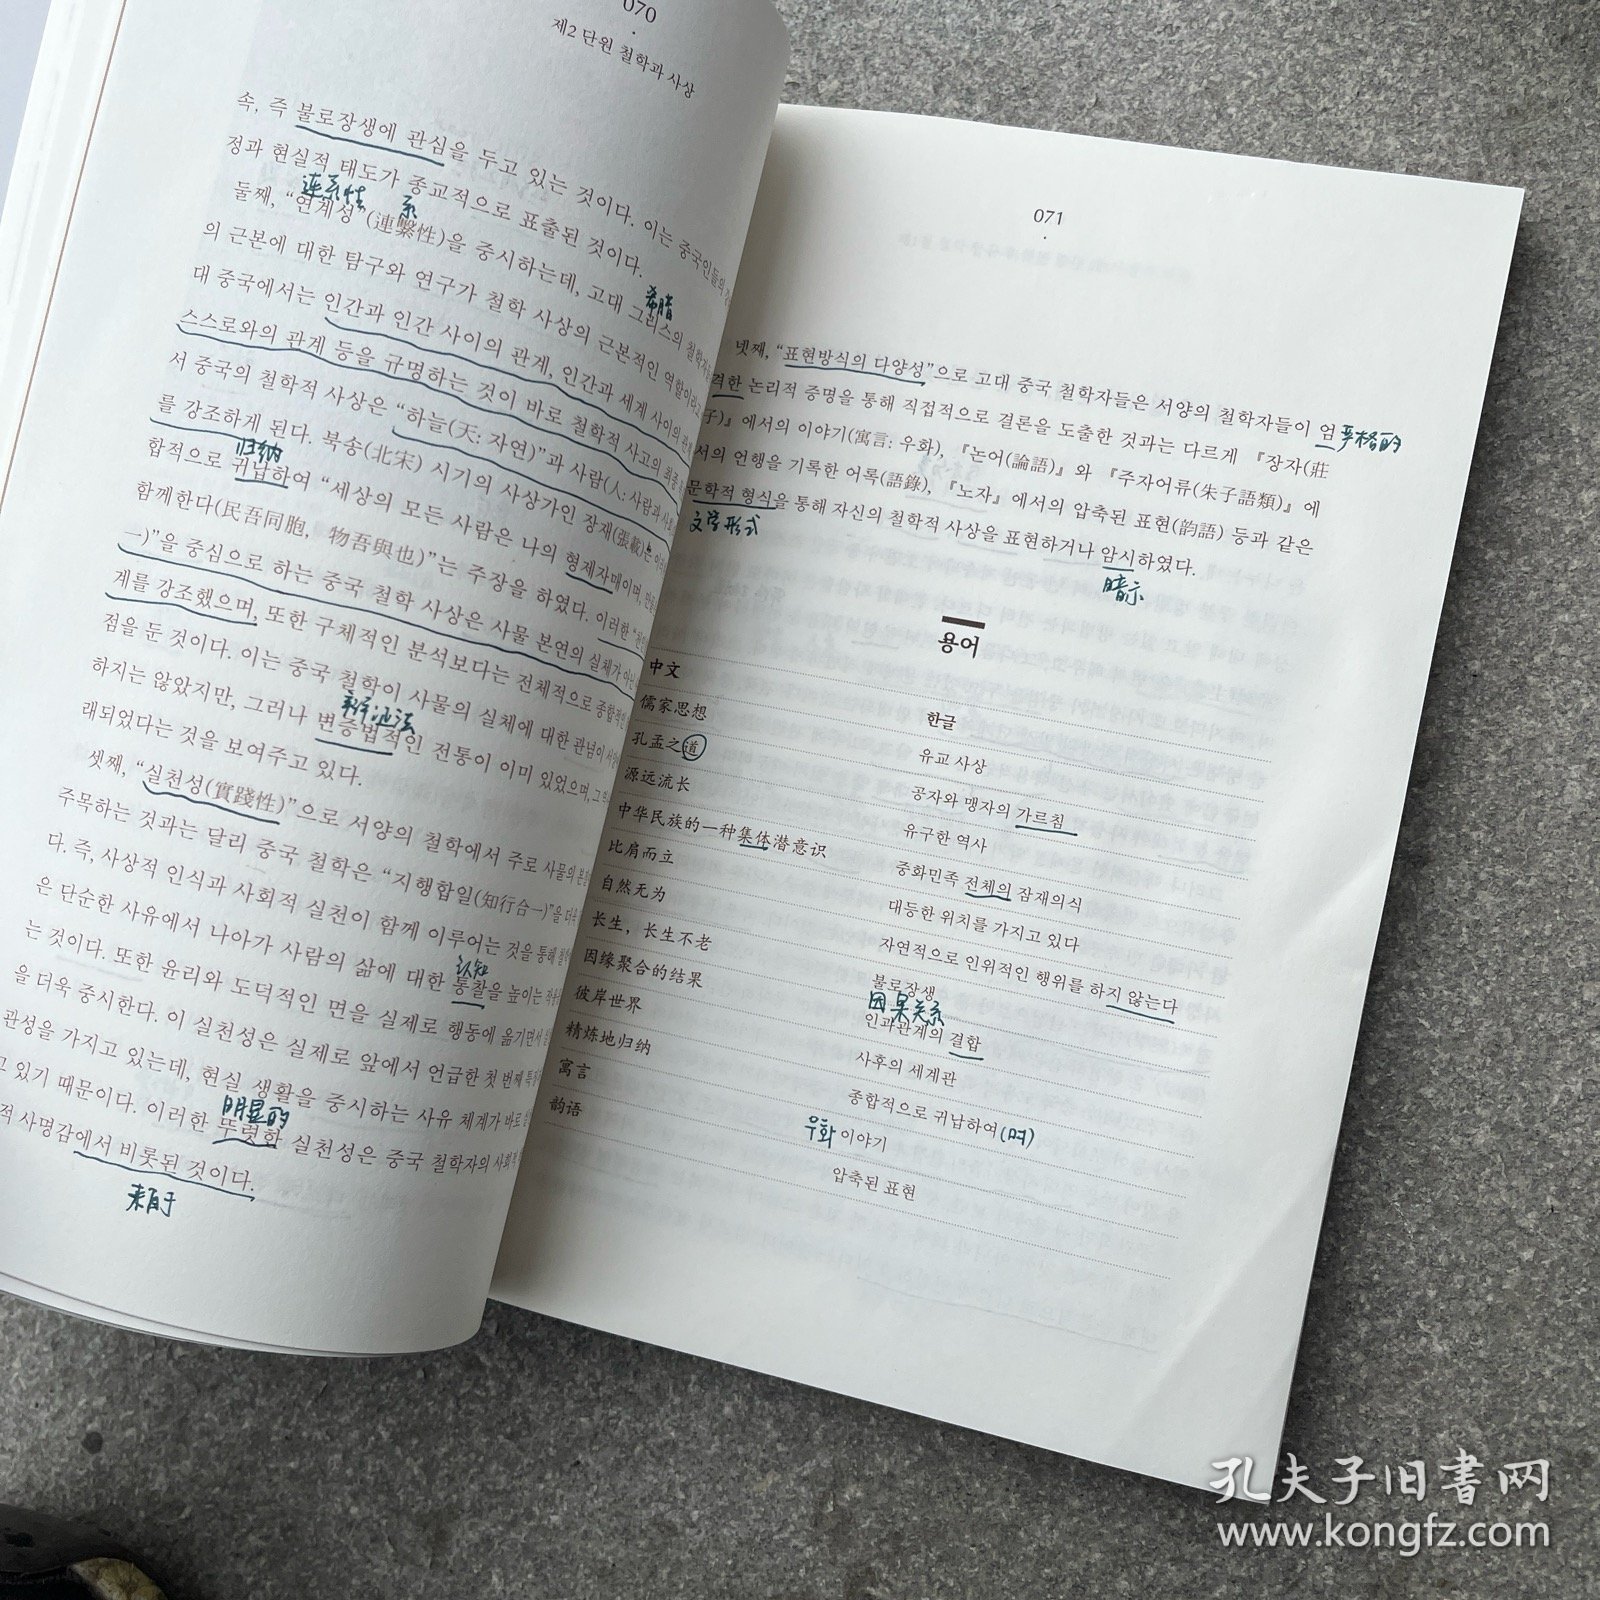 070
제2 단원 철학과 사상
속, 즉 불로장생에 관심을 두고 있는 것이다. 이는 중국인들의
정과 현실적 태도가 종교적으로 표출된 것이다.
连系性 系
둘째, “연계성”(連繫性)을 중시하는데, 고대 그리스의 철학자
希腊
의 근본에 대한 탐구와 연구가 철학 사상의 근본적인 역할이라고
대 중국에서는 인간과 인간 사이의 관계, 인간과 세계 사이의 관계
스스로와의 관계 등을 규명하는 것이 바로 철학적 사고의 최종
서 중국의 철학적 사상은 “하늘(天: 자연)”과 사람(人: 사람과 사회
를 강조하게 된다. 북송(北宋) 시기의 사상가인 장재(張載)는
归纳
합적으로 귀납하여 “세상의 모든 사람은 나의 형제자매이며, 만물
함께한다(民吾同胞, 物吾與也)”는 주장을 하였다. 이러한
一)”을 중심으로 하는 중국 철학 사상은 사물 본연의 실체가 아닌
계를 강조했으며, 또한 구체적인 분석보다는 전체적으로 종합적인
점을 둔 것이다. 이는 중국 철학이 사물의 실체에 대한 관념이
하지는 않았지만, 그러나 변증법적인 전통이 이미 있었으며,
래되었다는 것을 보여주고 있다.
셋째, “실천성(實踐性)”으로 서양의 철학에서 주로 사물의
주목하는 것과는 달리 중국 철학은 “지행합일(知行合一)”을 더욱
다. 즉, 사상적 인식과 사회적 실천이 함께 이루어는 것을 통해
은 단순한 사유에서 나아가 사람의 삶에 대한 통찰을 높이는
认知
는 것이다. 또한 윤리와 도덕적인 면을 실제로 행동에 옮기면서
을 더욱 중시한다. 이 실천성은 실제로 앞에서 언급한 첫 번째
관성을 가지고 있는데, 현실 생활을 중시하는 사유 체계가 바로
고 있기 때문이다. 이러한 뚜렷한 실천성은 중국 철학자의 사회적
明显的
적 사명감에서 비롯된 것이다.
来自于
071
넷째, “표현방식의 다양성”으로 고대 중국 철학자들은 서양의 철학자들이 엄
严格的
격한 논리적 증명을 통해 직접적으로 결론을 도출한 것과는 다르게 『장자(莊
子)』에서의 이야기(寓言: 우화), 『논어(論語)』와 『주자어류(朱子語類)』에
서의 언행을 기록한 어록(語錄), 『노자』에서의 압축된 표현(韵語) 등과 같은
문학적 형식을 통해 자신의 철학적 사상을 표현하거나 암시하였다.
文学形式
暗示
용어
中文 한글
儒家思想 유교 사상
孔孟之道 공자와 맹자의 가르침
源远流长 유구한 역사
中华民族的一种集体潜意识 중화민족 전체의 잠재의식
比肩而立 대등한 위치를 가지고 있다
自然无为 자연적으로 인위적인 행위를 하지 않는다
长生，长生不老 불로장생
因果关系
因缘聚合的结果 인과관계의 결합
彼岸世界 사후의 세계관
精炼地归纳 종합적으로 귀납하여(며)
寓言 우화 이야기
韵语 압축된 표현
孔夫子旧书网
www.kongfz.com